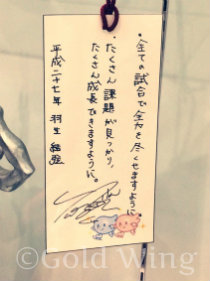 ・全ての試合で全力を尽くせますように。
・たくさん課題が見つかり、
たくさん成長できますように。
平成二十七年 羽生 結弦
©Gold Wing